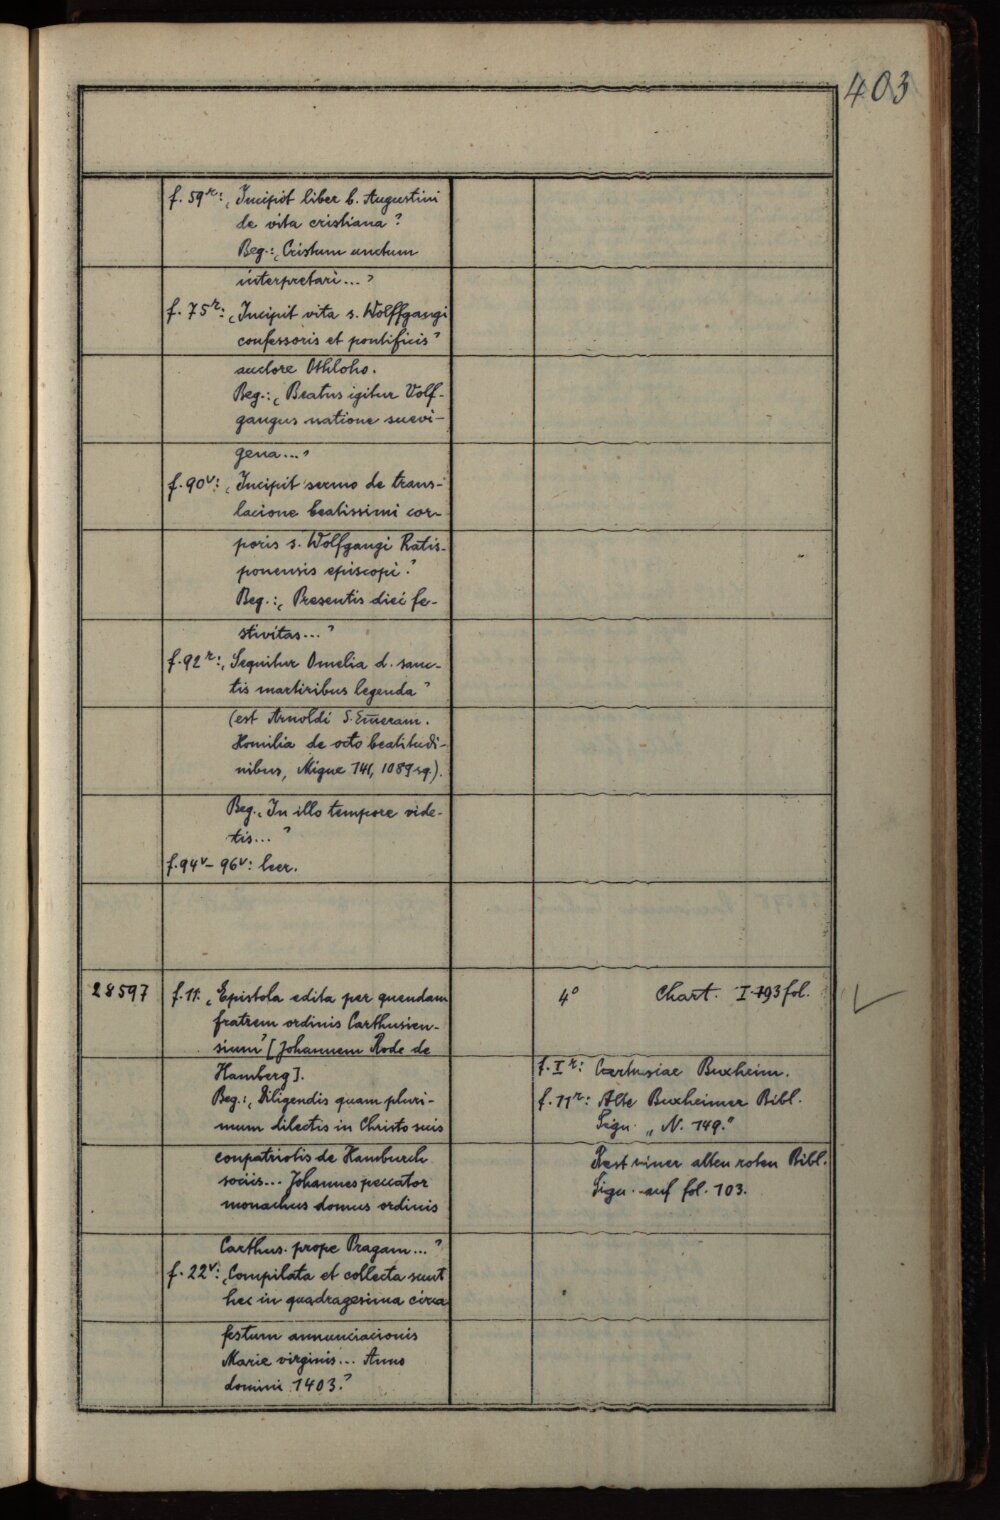 403
f. 59r: „Incipit liber b. Augustini
de vita cristiana"
Beg.: „Cristum unctum
interpretari..."
f. 75r: „Incipit vita s. Wolffgangi
confessoris et pontificis"
auctore Othloho.
Beg.: „Beatus igitur Volf-
gangus natione suevi-
gena..."
f. 90v: „Incipit sermo de trans-
lacione beatissimi cor-
poris s. Wolfgangi Ratis-
ponensis episcopi."
Beg.: „Presentis diei fe-
stivitas..."
f. 92r: „Sequitur Omelia d. sanc-
tis martiribus legenda"
(est Arnoldi S. Em̄eram.
Homilia de octo beatitudi-
nibus, Migne 141, 1089 sq.).
Beg. „In illo tempore vide-
tis..."
f. 94v – 96v: leer.
28597
f. 11: „Epistola edita per quendam
fratrem ordinis Carthusien-
sium" [Johannem Rode de
Hamberg].
Beg.: „Diligendis quam pluri-
mum dilectis in Christo suis
conpatriotis de Hamburch
sociis... Johannes peccator
monachus domus ordinis
Carthus. prope Pragam..."
f. 22v: „Compilata et collecta sunt
hec in quadragesima circa
festum annunciacionis
Marie virginis... Anno
domini 1403."
4° Chart. I 193 fol.
f. Ir: Cartusiae Buxheim.
f. 11r: Alte Buxheimer Bibl.
Sign. „N. 149."
Rest einer alten roten Bibl.
Sign. auf fol. 103.